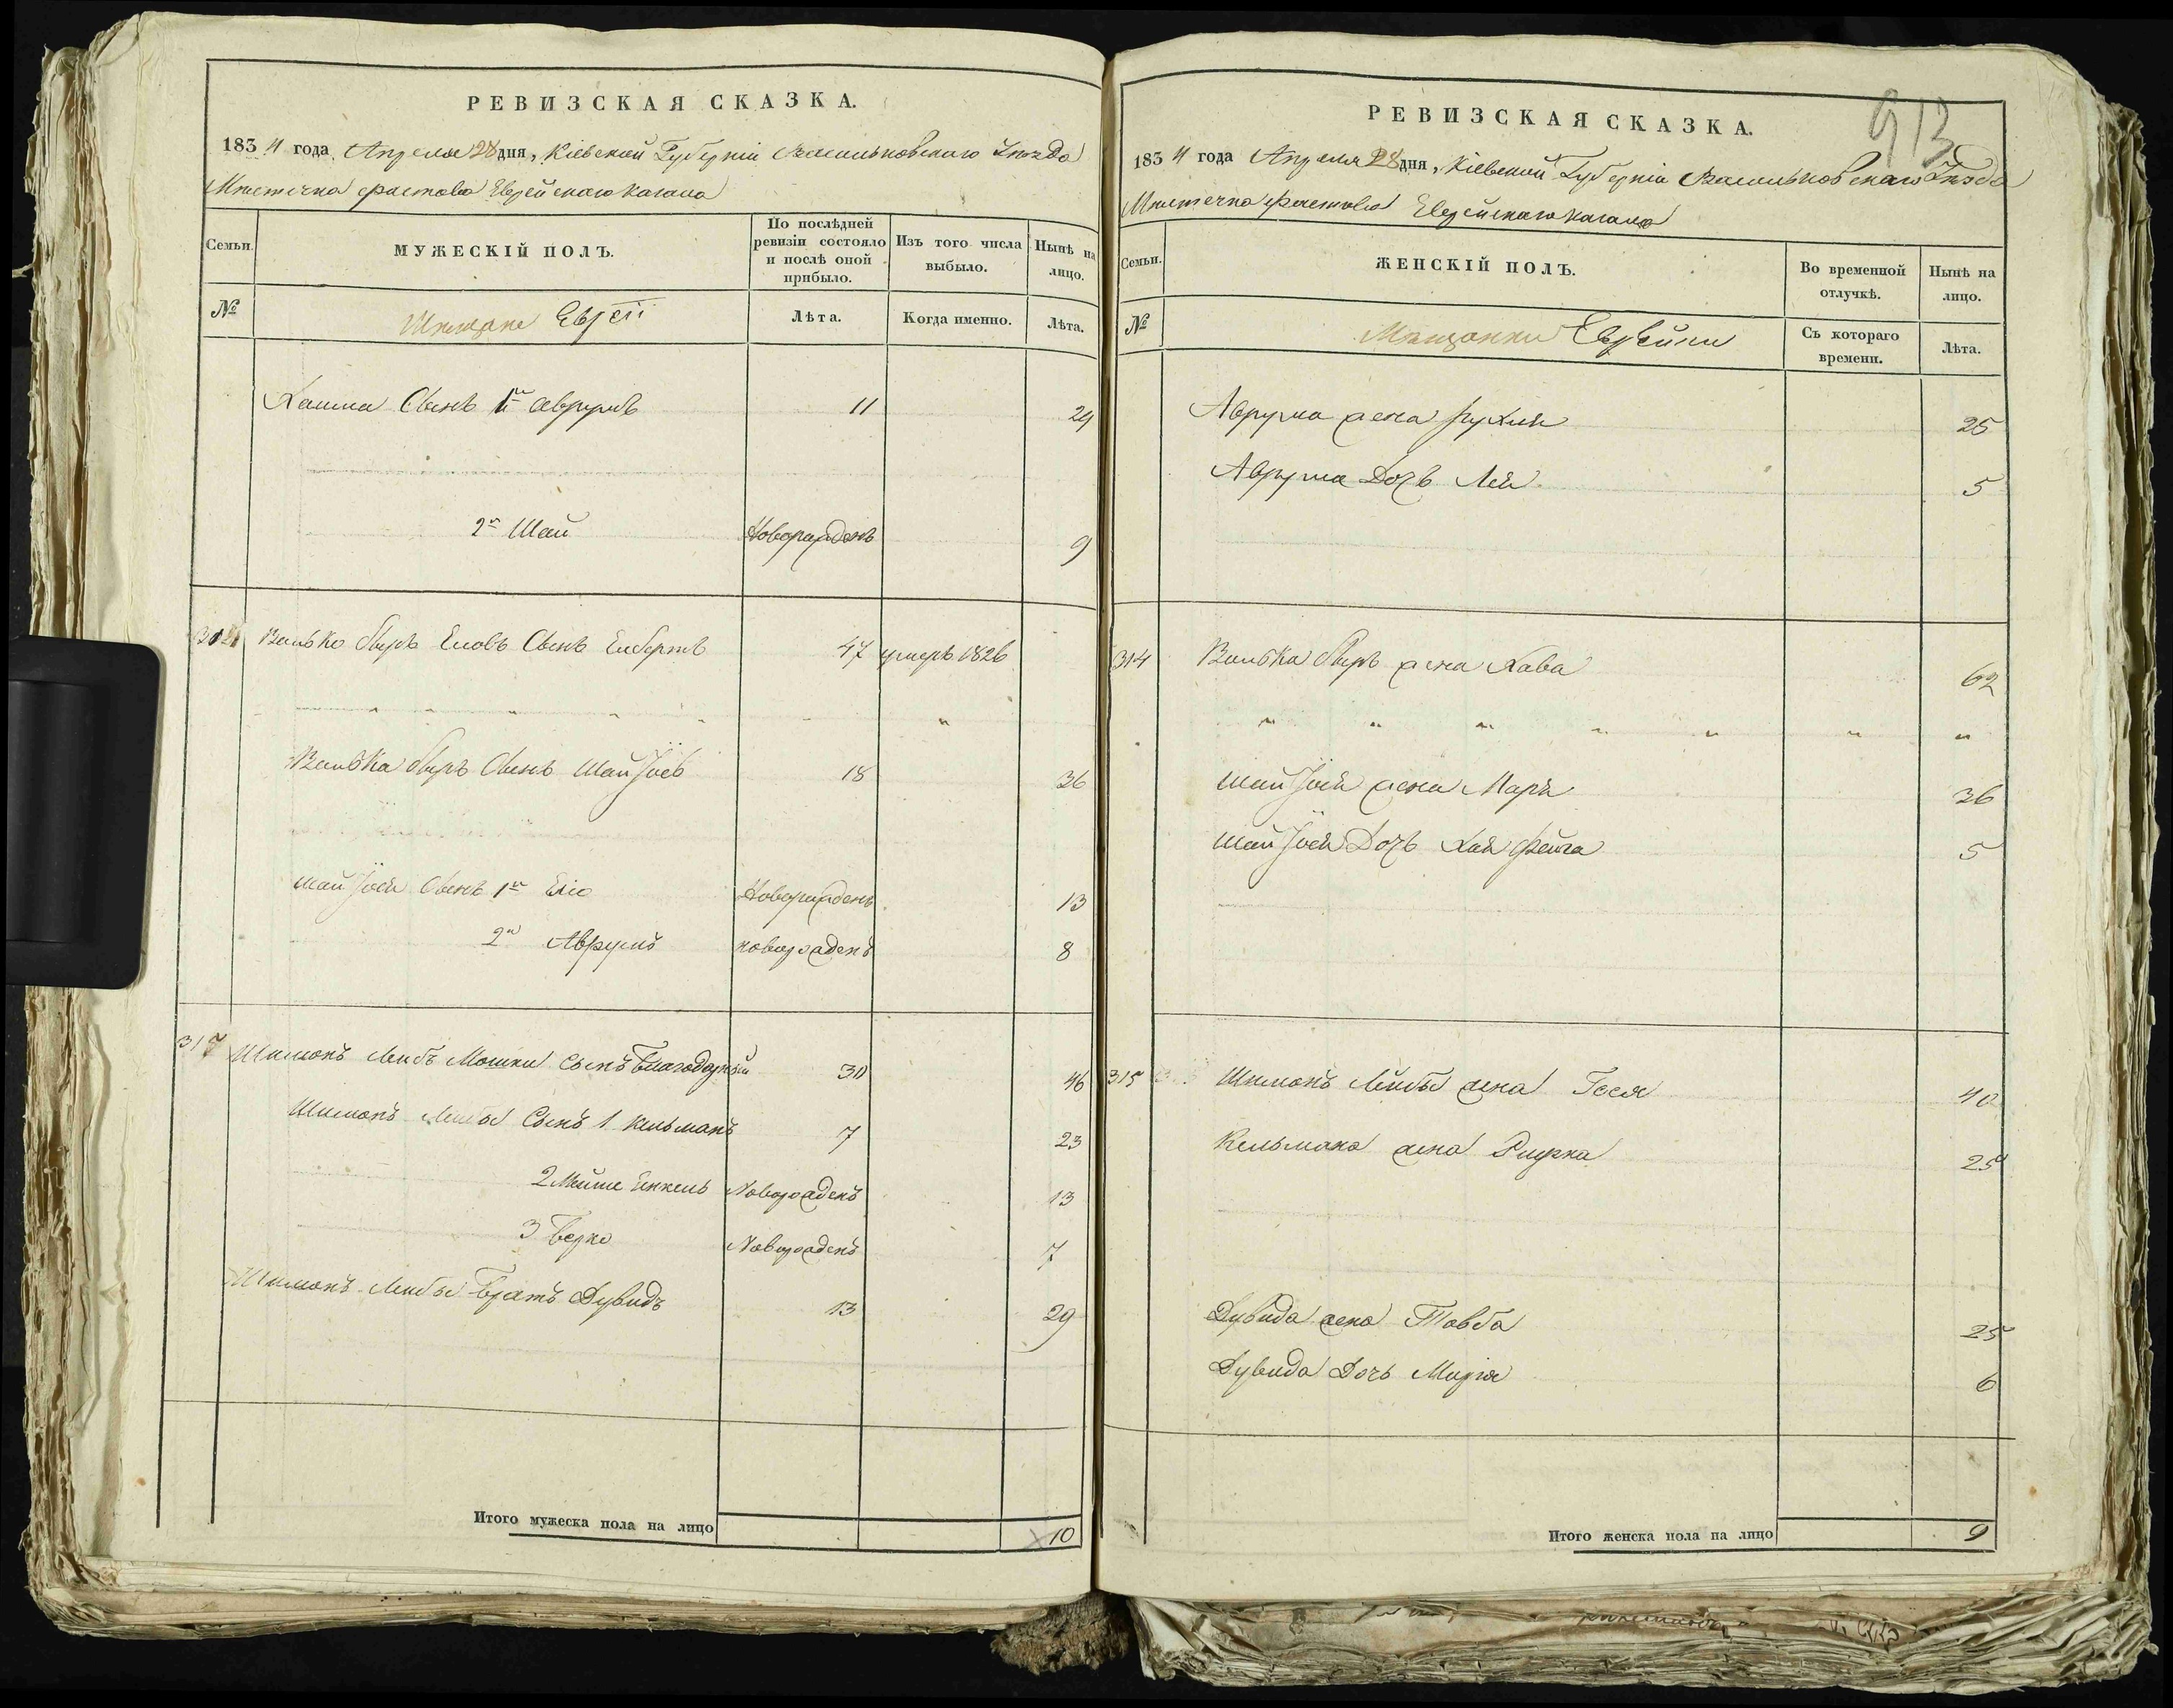 РЕВИЗСКАЯ СКАЗКА.
1834 года Апреля 28 дня, Кіевской Губерніи Васильковскаго Уѣзда
Мѣстечка Фастова Еврейскаго Кагала
Семьи.
МУЖЕСКІЙ ПОЛЪ.
По послѣдней ревизіи состояло и послѣ оной прибыло.
Изъ того числа выбыло.
Нынѣ на лицо.
№
Мѣщане Евреи
Лѣта.
Когда именно.
Лѣта.
Хаима Сынъ 1й Аврумъ 11 24
2й Шая Новорожденъ 9
Волько Беръ Сынъ 47 умеръ 1826
Волька Беръ Сынъ Шай 18 36
Шай Сынъ 1й Еліо Новорожденъ 13
2й Аврумъ новорожденъ 8
Шимонъ Лейбъ Мошки Сынъ Благодарный 30 46
Шимонъ Лейбы Сынъ 1 Кельманъ 7 23
2 Мойше Янкель Новорожденъ 13
3 Берко Новорожденъ 7
Шимонъ Лейбы Братъ Дувидъ 13 29
Итого мужеска пола на лицо 10
913
РЕВИЗСКАЯ СКАЗКА.
1834 года Апреля 28 дня, Кіевской Губерніи Васильковскаго Уѣзда
Мѣстечка Фастова Еврейскаго Кагала
Семьи.
ЖЕНСКІЙ ПОЛЪ.
Во временной отлучкѣ.
Нынѣ на лицо.
№
Мѣщанки Еврейки
Съ котораго времени.
Лѣта.
Аврума жена Рухля 25
Аврума Дочь Лея 5
314 Волька Беръ жена Хава 62
Шай жена Маря 36
Шай Дочь Хая Фейга 5
315 Шимонъ Лейбы жена Гося 40
Кельмана жена 25
Дувида жена Товба 25
Дувида Дочь Миріа 6
Итого женска пола на лицо 9